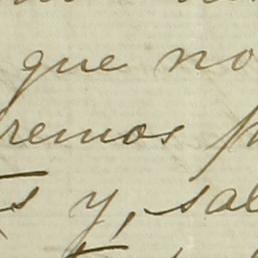 que no
remos p
s y, sal